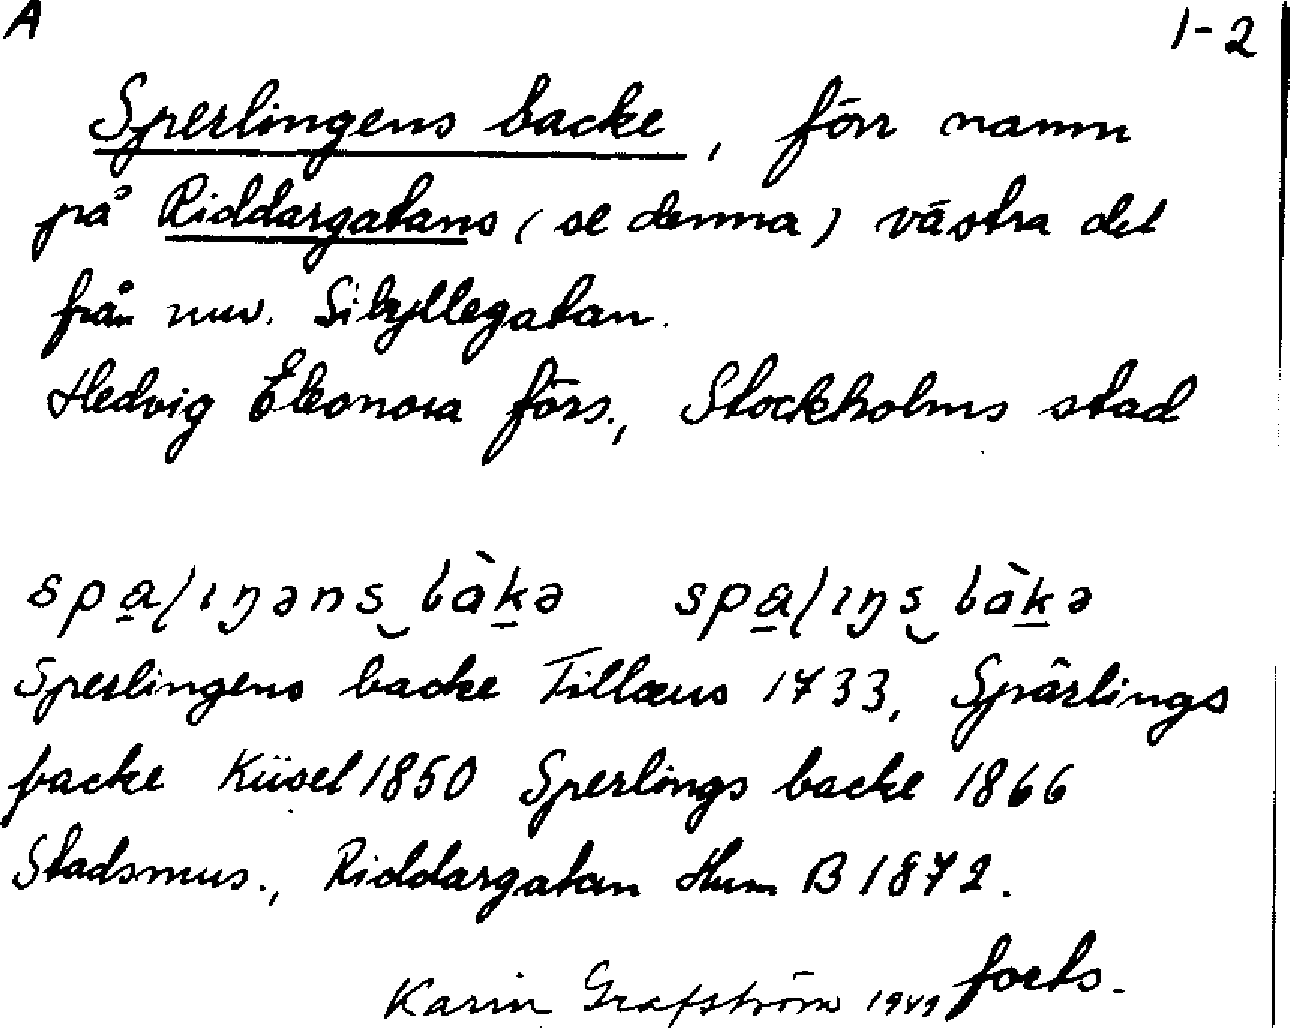 A 1-2
Sperlingens backe, förr namn
på Riddargatans (se denna) västra del
från nuv. Sibyllegatan.
Hedvig Eleonora förs., Stockholms stad
spa̲ɭıŋəns̮ bàk̲ə spa̲ɭıŋs̮ bàk̲ə
Sperlingens backe Tillæus 1733, Spärlings
backe Küsel 1850 Sperlings backe 1866
Stadsmus., Riddargatan Hum B 1872.
forts.
Karin Grafström 1949